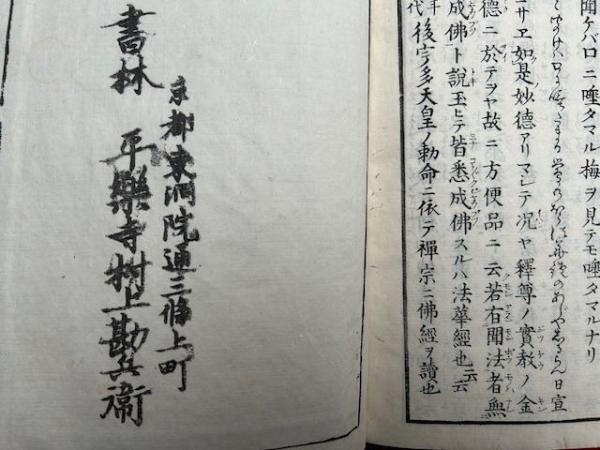 聞ケバ口ニ唾タマル梅ヲ見テモ唾タマルナリ
日宣
ニサヱ如是妙德アリマシテ况ヤ釋尊ノ實教ノ金
德ニ於テヲヤ故ニ方便品ニ云若有聞法者無
成佛ト說玉ヒテ皆悉成佛スルハ法華經也云云
代後宇多天皇ノ勅命ニ依テ禪宗ニ佛經ヲ讀也
京都東洞院通三條上町
書林 平樂寺村上勘兵衛